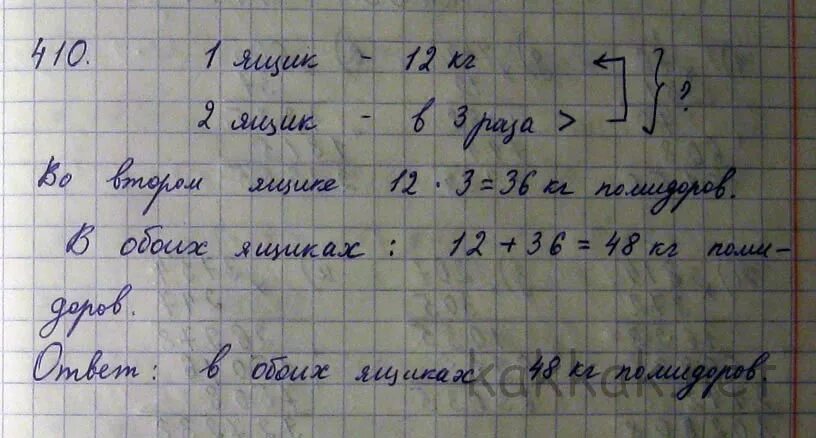 410. 1 ящик - 12 кг
2 ящик - в 3 раза > ?
Во втором ящике 12 · 3 = 36 кг помидоров.
В обоих ящиках : 12 + 36 = 48 кг поми-
доров.
Ответ : в обоих ящиках 48 кг помидоров.
kakkak.net